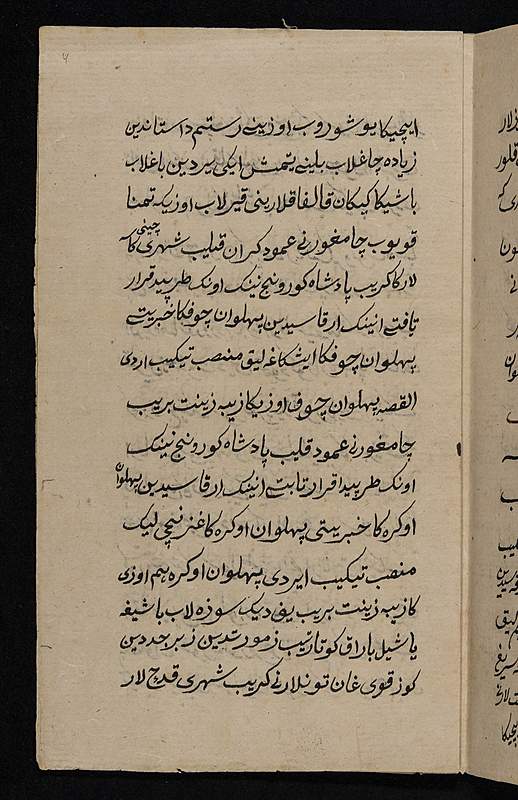 ایچیکا یوشوروب اوزینی رستم داستاندین
زیاده چاغلاب بلینی یتمش ایکی یردین باغلاب
باشیکا کیکان قالفاقلارینی قیرلاب اوزیکه تمنا
قویوب چامغورنی عمود کران قیلیب شهری چینی کاسه
لارکا کریب پادشاه کورونج نینک اونک طرپیدا قرار
تافتی انینک ارقاسیدین پهلوان چوفکا خبر یتی
پهلوان چوفکا ایشکاغه لیق منصب تیکیب اردی
القصه پهلوان چوف اوزیکا زیبه زینت بریب
چامغورنی عمود قلیب پادشاه کورونج نینک
اونک طرپیدا قرار تابتی انینک ارقاسیدین پهلوان
اوکره کا خبر یتی پهلوان اوکره کا غنرنیچی لیک
منصب تیکیب ایردی پهلوان اوکره هم اوزی
کا زیبه زینت بریب یفی دیک سوزه لاب باشیغه
یاشیل یاراق کوتاریب زمورتدین زبرجددین
کوز قوی غان تونلارنی کریب شهری قدح لار